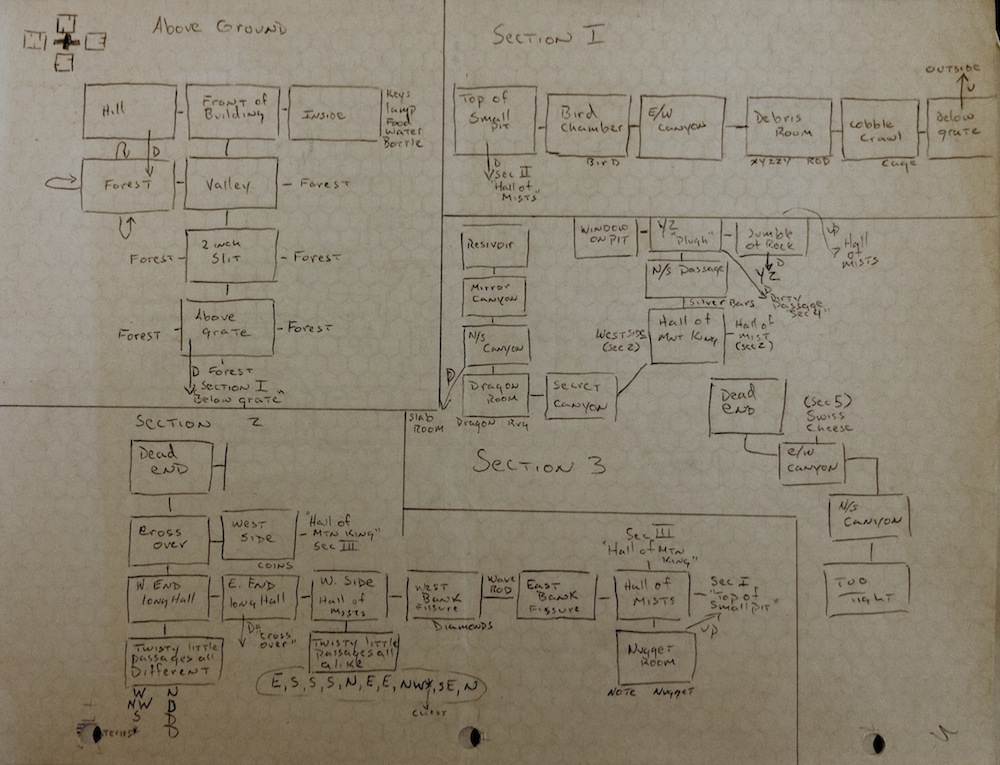 Above Ground
Hill
Front of
Building
Inside
Keys
lamp
Food
Water
Bottle
D
Forest
Valley
Forest
2 inch
Slit
Forest
Forest
Above
grate
Forest
Forest
D Forest
"Section I
Below grate"
Section I
Top of
Small
pit
Bird
Chamber
E/W
Canyon
Debris
Room
Cobble
Crawl
Below
grate
OUTSIDE
U
Bird
XYZZY ROD
Cage
D
Sec II
"Hall of
Mists"
Resivoir
Mirror
Canyon
N/S
Canyon
D
Dragon
Room
Secret
Canyon
Slab
Room
Dragon Rug
Window
on Pit
Y2
"Plugh"
Jumble
of Rock
UP
Hall
of
Mists
D
Y2
N/S Passage
D
Dirty
Passage
"Sec 4"
Silver Bars
Hall of
Mnt King
West Side
(Sec 2)
Hall of
Mist
(Sec 2)
Section 3
Dead
End
(Sec 5)
Swiss
Cheese
E/W
Canyon
N/S
Canyon
Too
Tight
Section 2
Dead
End
Cross
Over
West
Side
"Hall of
Mtn King"
Sec III
Coins
W. End
Long Hall
E. End
Long Hall
W. Side
Hall of
Mists
West
Bank
Fissure
Wave
Rod
East
Bank
Fissure
Hall of
Mists
Sec III
"Hall of Mtn
King"
Sec I
"Top of
Small pit"
UP
Diamonds
D=
"Cross
Over"
Twisty little
Passages all
Different
Twisty little
Passages all
alike
Nugget
Room
Note Nugget
E, S, S, S, N, E, E, NW*, SE, N
Chest
W N
NW D
S D
D